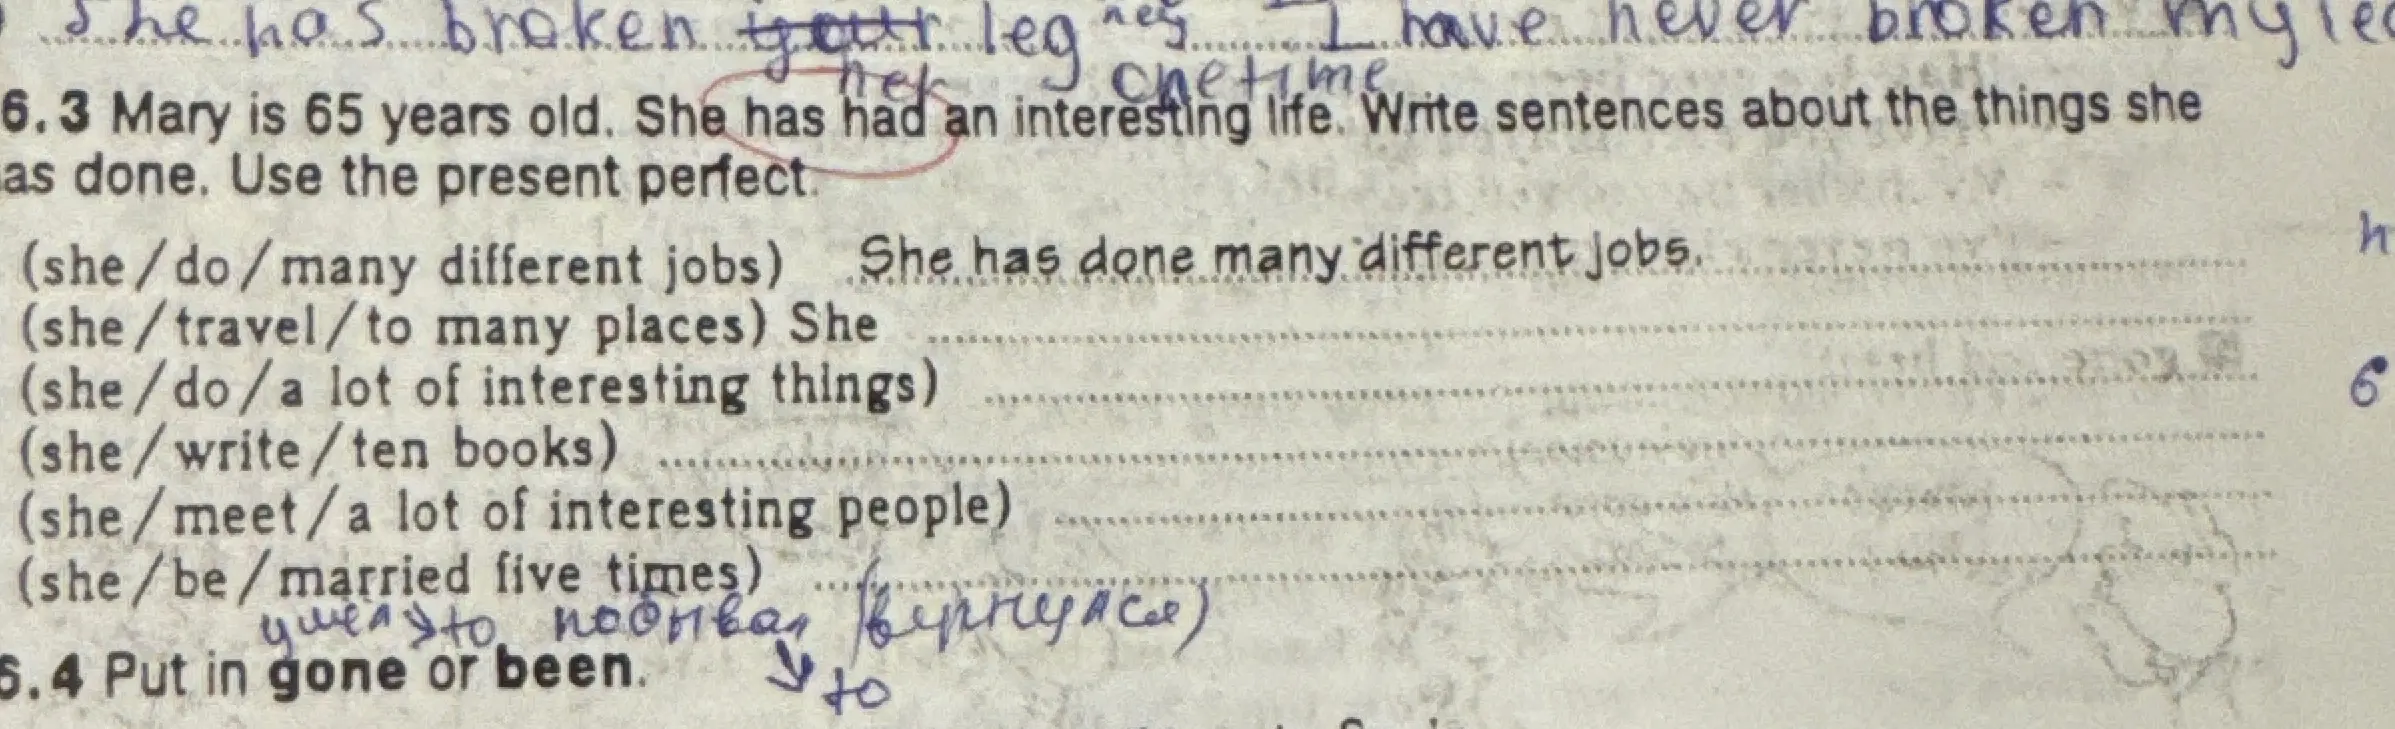 She has broken your leg ney I have never broken my leg
her one time
6.3 Mary is 65 years old. She has had an interesting life. Write sentences about the things she
as done. Use the present perfect.
(she/do/many different jobs) She has done many different jobs.
(she/travel/to many places) She
(she/do/a lot of interesting things)
(she/write/ten books)
(she/meet/a lot of interesting people)
(she/be/married five times)
ушел → to побывал (вернулся)
6.4 Put in gone or been.
↘ to